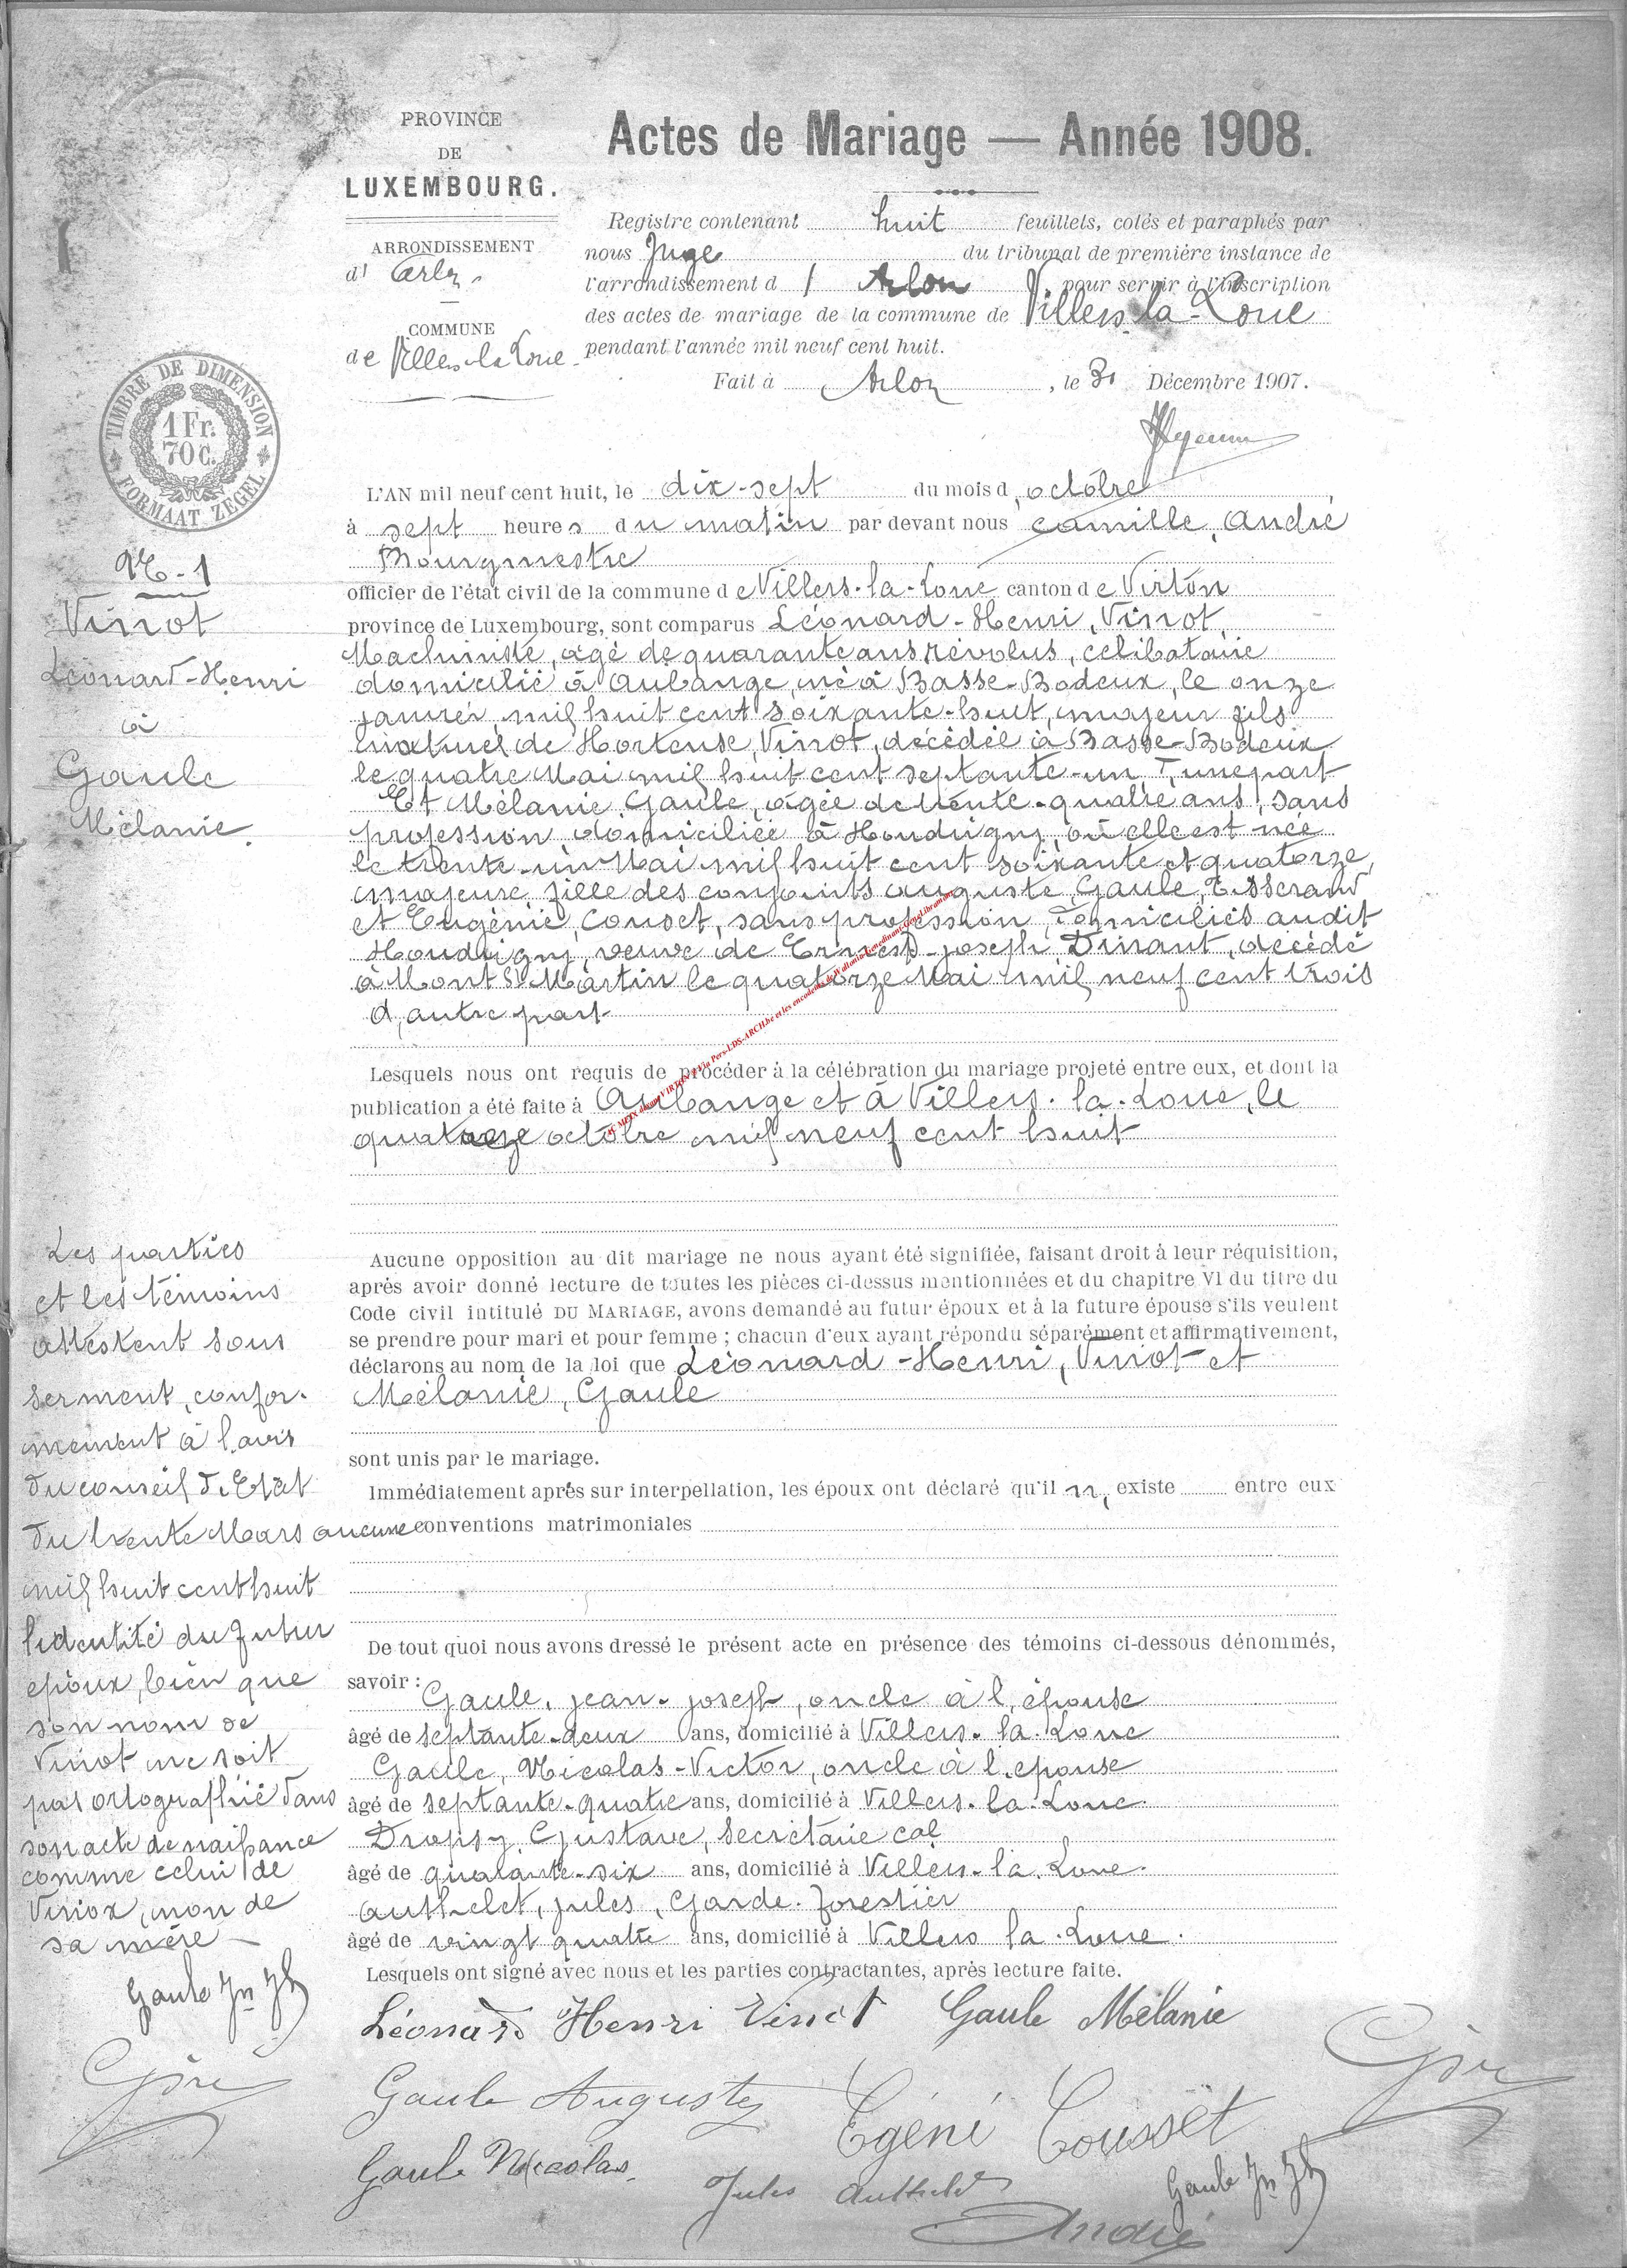 PROVINCE
DE
LUXEMBOURG.
ARRONDISSEMENT
d' Arlon
COMMUNE
de Villers-la-Loue
Actes de Mariage — Année 1908.
Registre contenant huit feuillets, cotés et paraphés par
nous Juge du tribunal de première instance de
l'arrondissement d' Arlon pour servir à l'inscription
des actes de mariage de la commune de Villers-la-Loue
pendant l'année mil neuf cent huit.
Fait à Arlon, le 31 Décembre 1907.
TIMBRE DE DIMENSION
1 Fr.
70 C.
FORMAAT ZEGEL
N° - 1
Vinot
Léonard-Henri
à
Gaule
Mélanie.
L'AN mil neuf cent huit, le dix-sept du mois d'octobre
à sept heures du matin par devant nous Camille, André
Bourgmestre
officier de l'état civil de la commune de Villers-la-Loue canton de Virton
province de Luxembourg, sont comparus Léonard-Henri, Vinot,
Machiniste, âgé de quarante ans révolus, célibataire
domicilié à Aubange, né à Basse-Bodeux, le onze
janvier mil huit cent soixante-huit, majeur fils
naturel de Hortense, Vinot, décédée à Basse-Bodeux
le quatre Mai mil huit cent septante-un d'une part
Et Mélanie, Gaule, âgée de trente-quatre ans, sans
profession domiciliée à Houdrigny, où elle est née
le trente-un Mai mil huit cent soixante et quatorze,
majeure fille des conjoints Auguste, Gaule, Tisserand
et Eugénie, Couset, sans profession, domiciliés audit
Houdrigny, veuve de Ernest-Joseph Dinant, décédé
à Mont St Martin le quatorze Mai mil neuf cent trois
d'autre part
Lesquels nous ont requis de procéder à la célébration du mariage projeté entre eux, et dont la
publication a été faite à Aubange et à Villers-la-Loue, le
quatre octobre mil neuf cent huit
Aucune opposition au dit mariage ne nous ayant été signifiée, faisant droit à leur réquisition,
après avoir donné lecture de toutes les pièces ci-dessus mentionnées et du chapitre VI du titre du
Code civil intitulé DU MARIAGE, avons demandé au futur époux et à la future épouse s'ils veulent
se prendre pour mari et pour femme ; chacun d'eux ayant répondu séparément et affirmativement,
déclarons au nom de la loi que Léonard-Henri, Vinot et
Mélanie, Gaule
sont unis par le mariage.
Immédiatement après sur interpellation, les époux ont déclaré qu'il n'existe entre eux
aucune conventions matrimoniales
De tout quoi nous avons dressé le présent acte en présence des témoins ci-dessous dénommés,
savoir : Gaule, Jean-Joseph, oncle à l'épouse
âgé de septante-deux ans, domicilié à Villers-la-Loue
Gaule, Nicolas-Victor, oncle à l'épouse
âgé de septante-quatre ans, domicilié à Villers-la-Loue
Dropsy, Gustave, secrétaire cal
âgé de quarante-six ans, domicilié à Villers-la-Loue
Authelet, Jules, Garde-forestier
âgé de vingt quatre ans, domicilié à Villers la-Loue.
Lesquels ont signé avec nous et les parties contractantes, après lecture faite.
Les parties
et les témoins
attestent sous
serment, confor-
mément à l'avis
du conseil d'Etat
du trente Mars
mil huit cent huit
l'identité du futur
époux, bien que
son nom de
Vinot ne soit
pas ortografhié dans
son acte de naissance
comme celui de
Viniox, nom de
sa mère
Gaule Jn Jh
Léonard Henri Vinot Gaule Mélanie
Gaule Auguste Egéni Cousset
Gaule Nicolas Jules Authelet Gaule Jn Jh
André